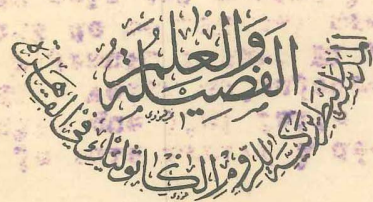 الفضيلة والعلم
المدرسة البطريركية للروم الكاثوليك في القاهرة